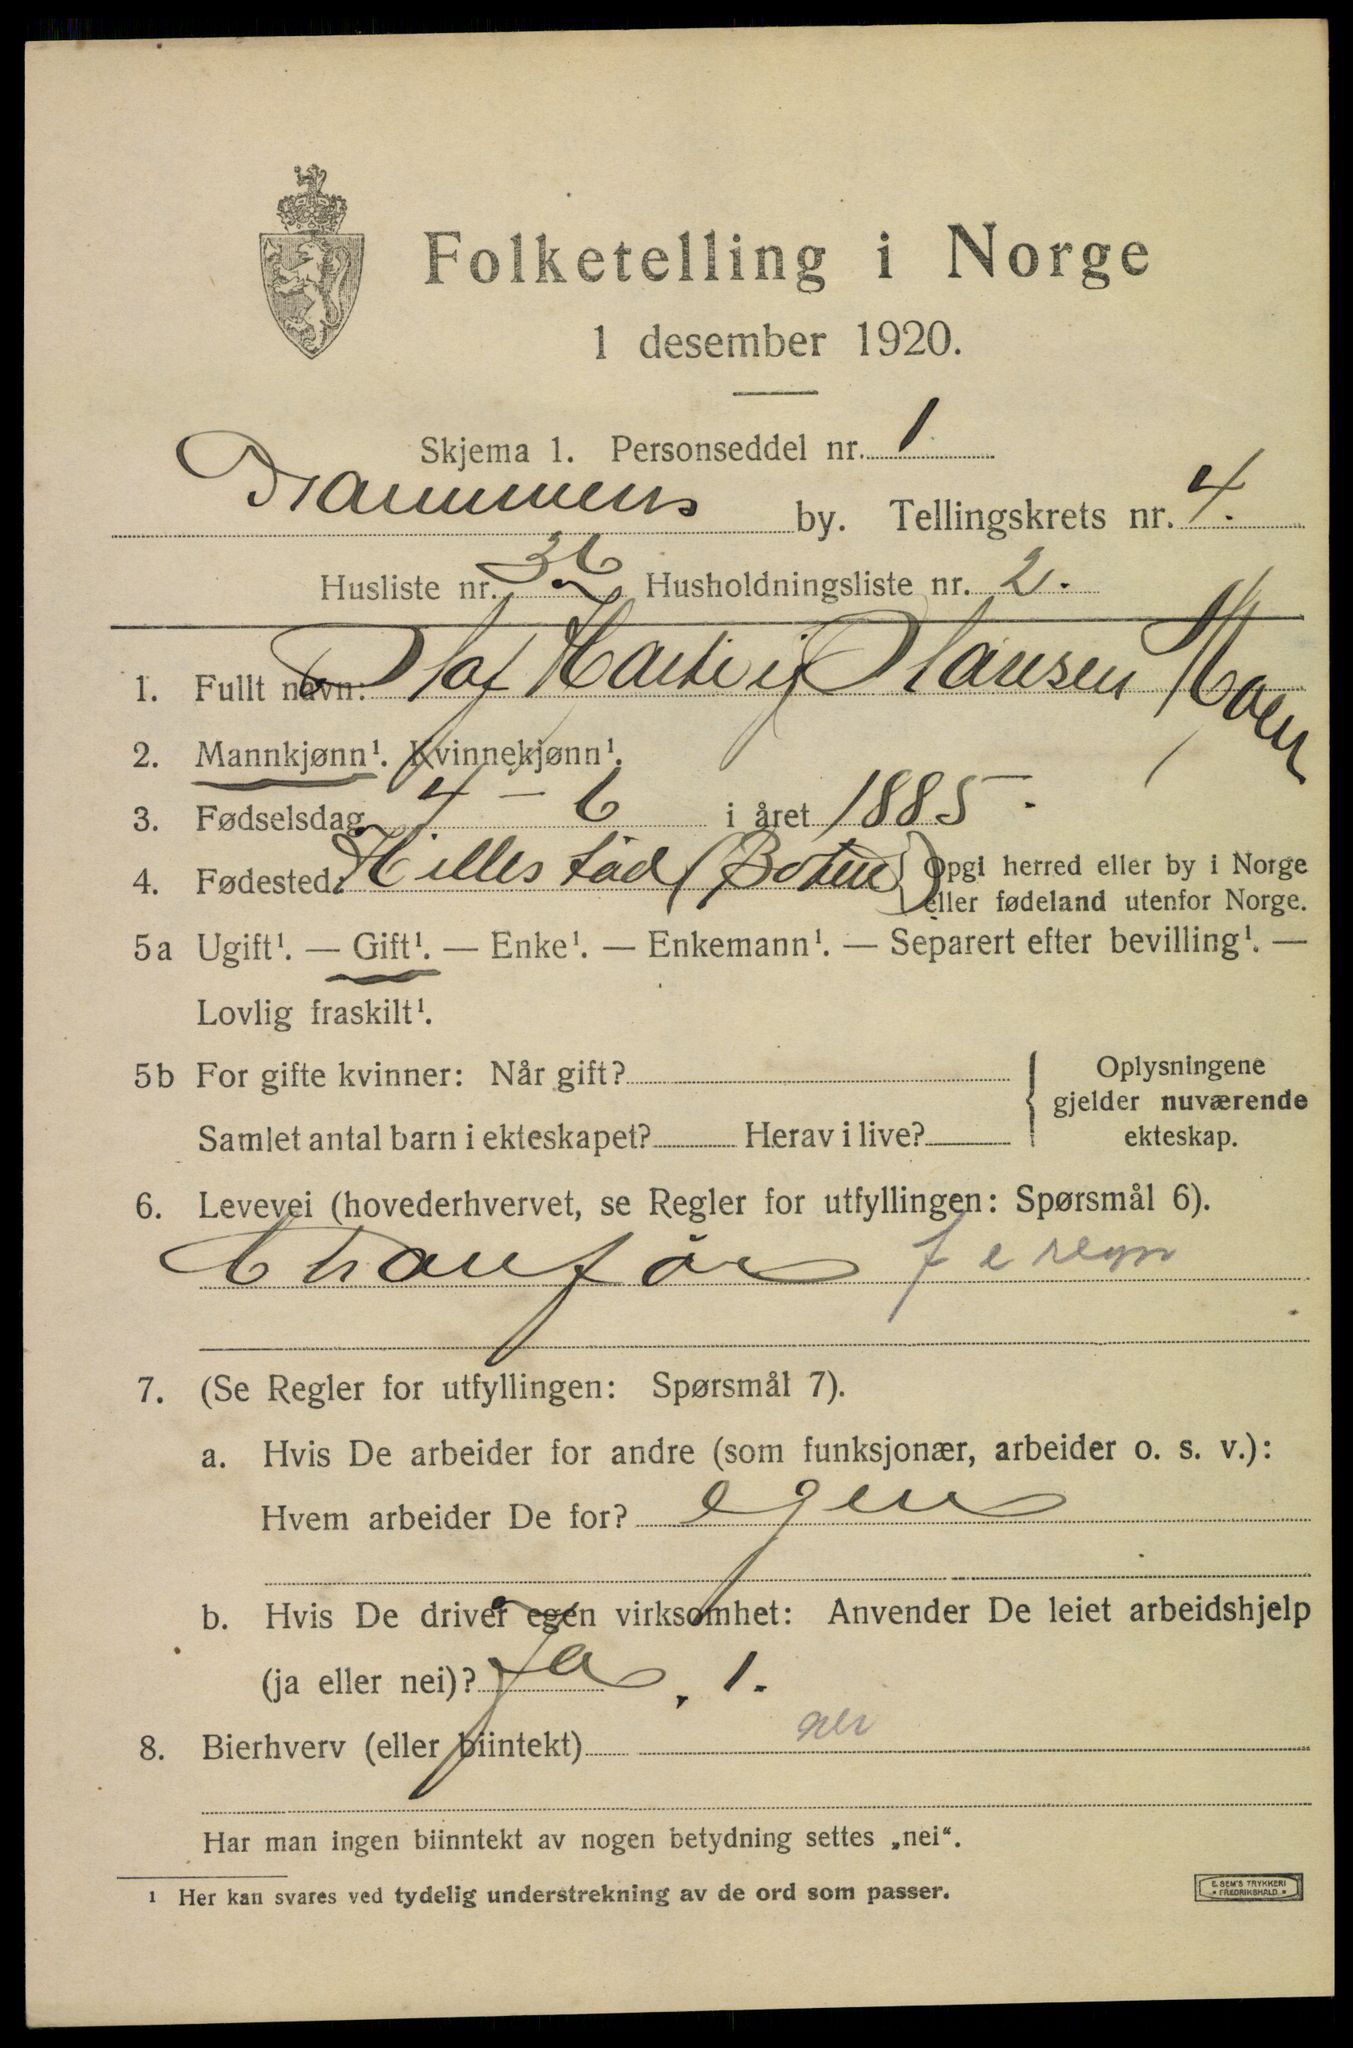 Folketelling i Norge
1 desember 1920.
Skjema 1. Personseddel nr. 1
Drammens by. Tellingskrets nr. 4.
Husliste nr. 36 Husholdningsliste nr. 2.
1. Fullt navn: Olaf Hartvig Hansen Moen
2. Mannkjønn¹. Kvinnekjønn¹.
3. Fødselsdag 4 - 6 i året 1885.
4. Fødested: Hillestad (Botne) { Opgi herred eller by i Norge
eller fødeland utenfor Norge.
5a Ugift¹. — Gift¹. — Enke¹. — Enkemann¹. — Separert efter bevilling¹. —
Lovlig fraskilt¹.
5b For gifte kvinner: Når gift? { Oplysningene
gjelder nuværende
Samlet antal barn i ekteskapet? Herav i live? ekteskap.
6. Levevei (hovederhvervet, se Regler for utfyllingen: Spørsmål 6).
Chauffør f e regn
7. (Se Regler for utfyllingen: Spørsmål 7).
a. Hvis De arbeider for andre (som funksjonær, arbeider o. s. v.):
Hvem arbeider De for? egen
b. Hvis De driver egen virksomhet: Anvender De leiet arbeidshjelp
(ja eller nei)? Ja, 1.
8. Bierhverv (eller biintekt) nei
Har man ingen biinntekt av nogen betydning settes „nei“.
¹ Her kan svares ved tydelig understrekning av de ord som passer.
E. SEM'S TRYKKERI
• FREDRIKSHALD •